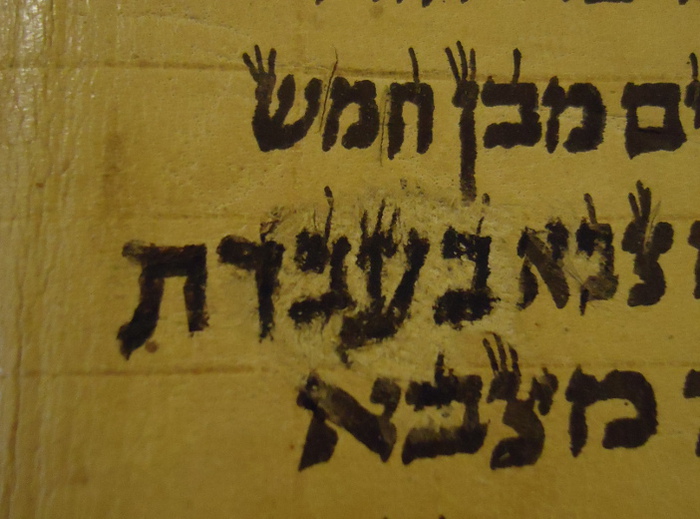 מבן חמש
צבא בעבדת
מצבא